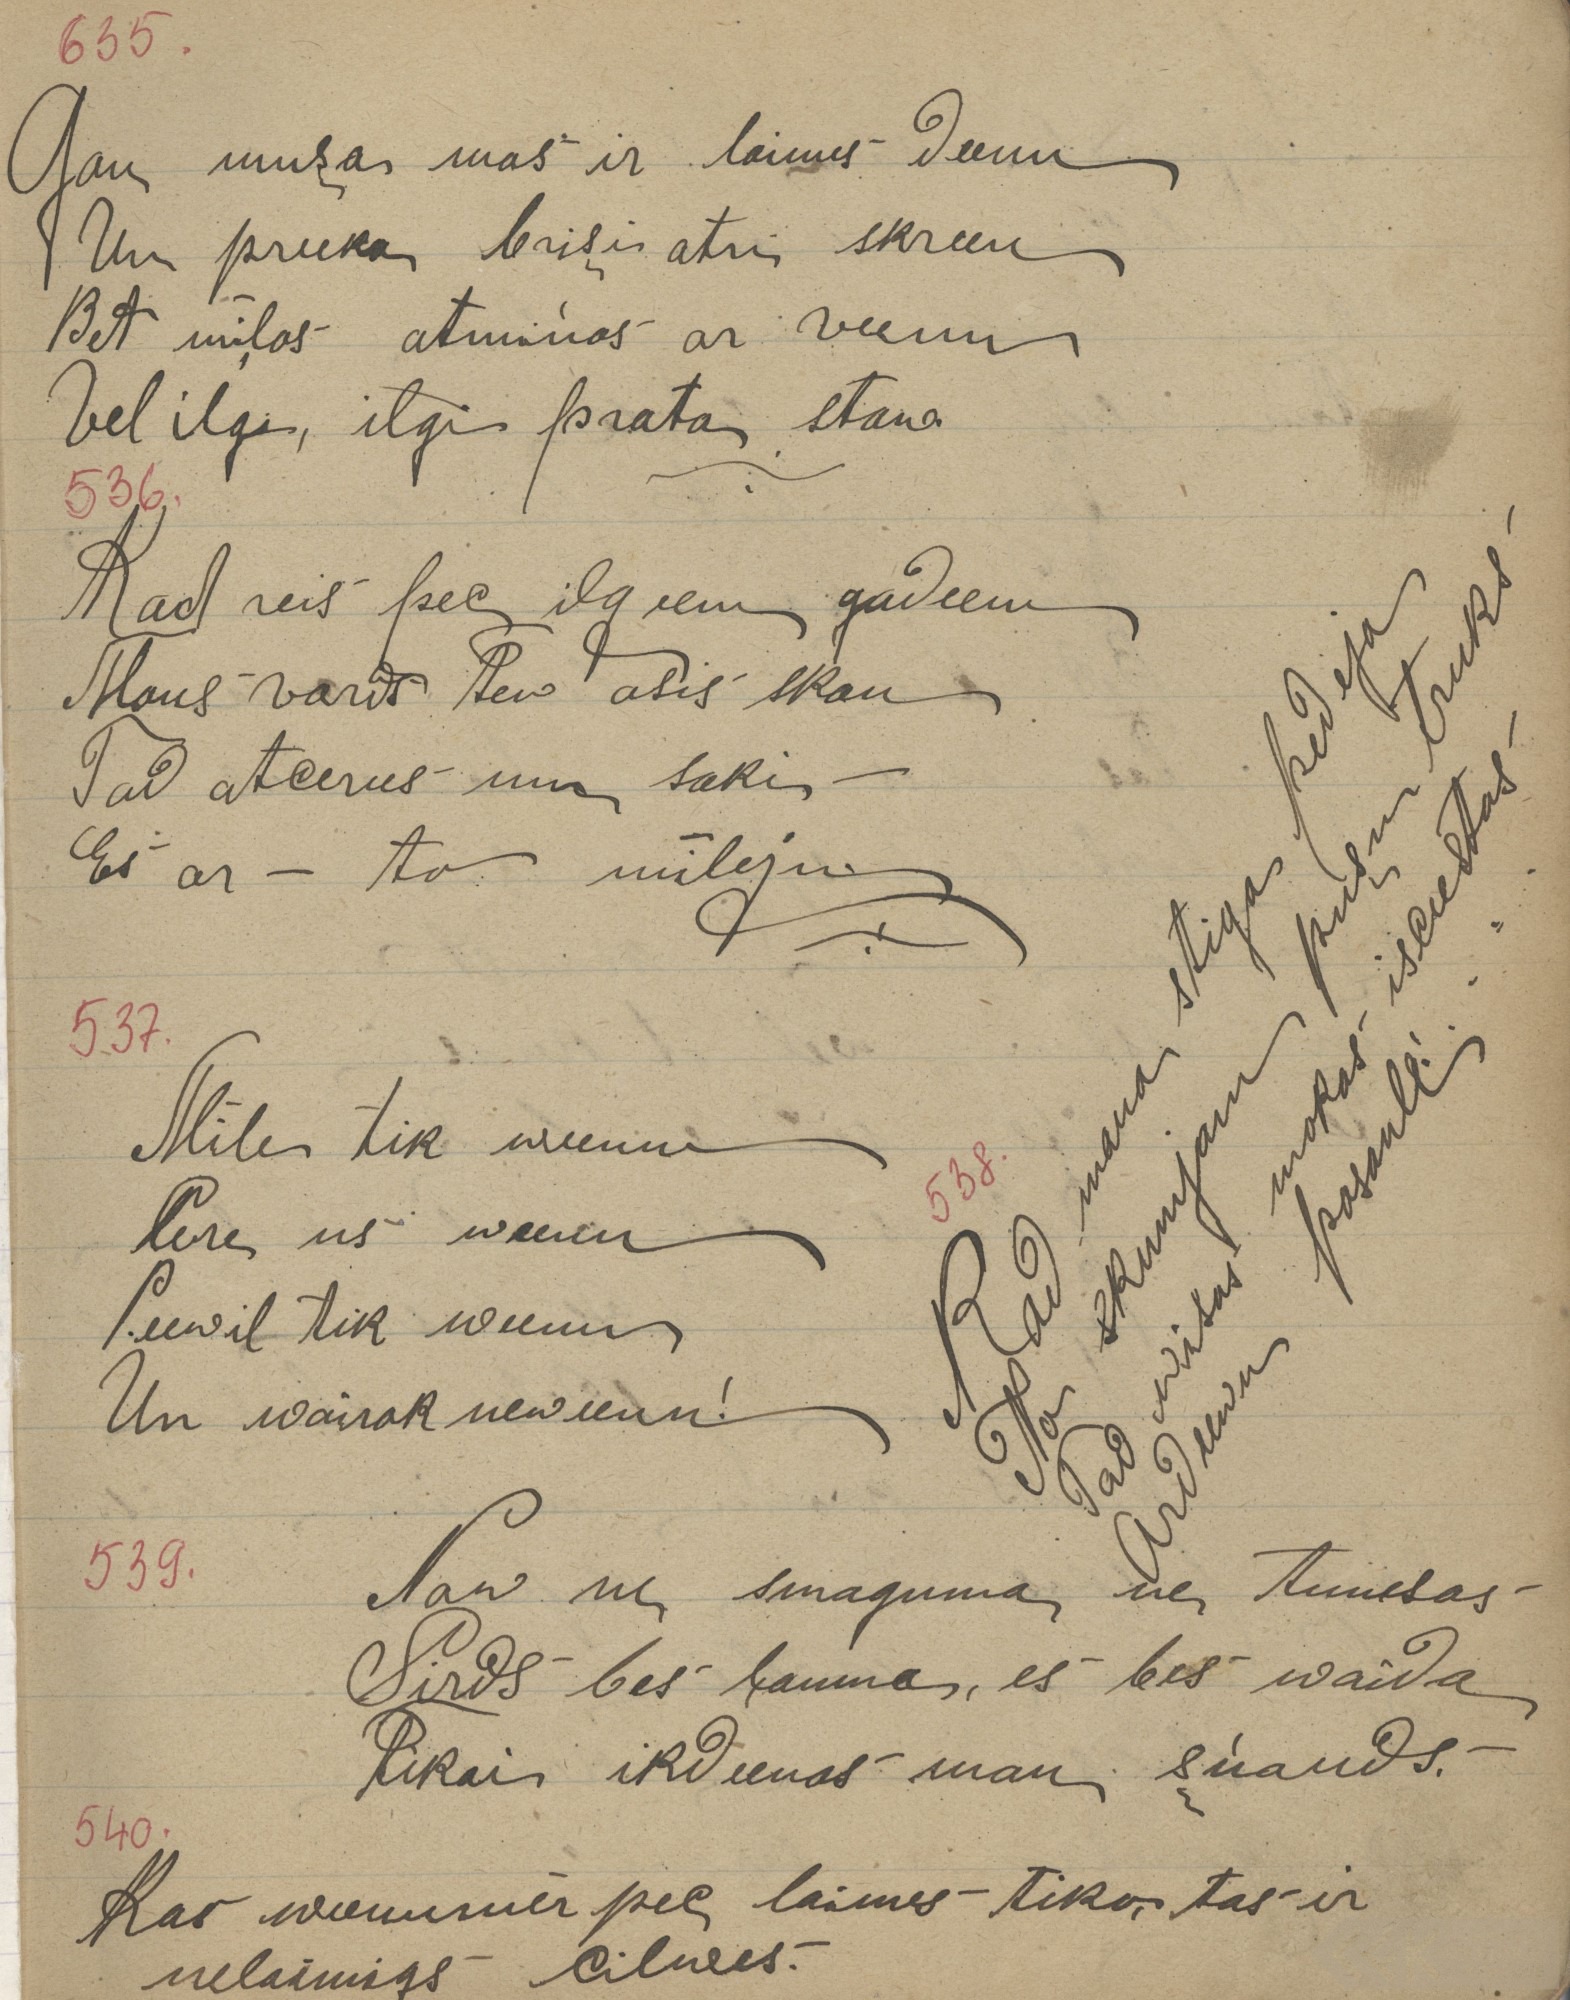 635.
Gan muşa mas ir laimes deenu
Un preeka brişi atri skreen
Bet mīļas atmiņas ar veenu
Vel ilgi, ilgi prata stav
536.
Kad reis pec ilgeem gadeem
Mans vards Tew ausis skan
Tad atcerees un saki —
Es ar — to mīleju
537.
Mīle tik weenu
Cere us weenu
Peewil tik weenu
Un wairak neweenu!
538.
Kad mana stiga pedeja
No skumjam puşu truks
Tad wisas mokas isciestas
Ardeewu pasaulē!
539.
Naw ne smaguma ne tumsas
Sirds bes bauma, es bes waida
Tikai ikdeenas man şņauds.
540.
Kas weenmēr pec laimes tiko, tas ir
nelaimigs cilwes.